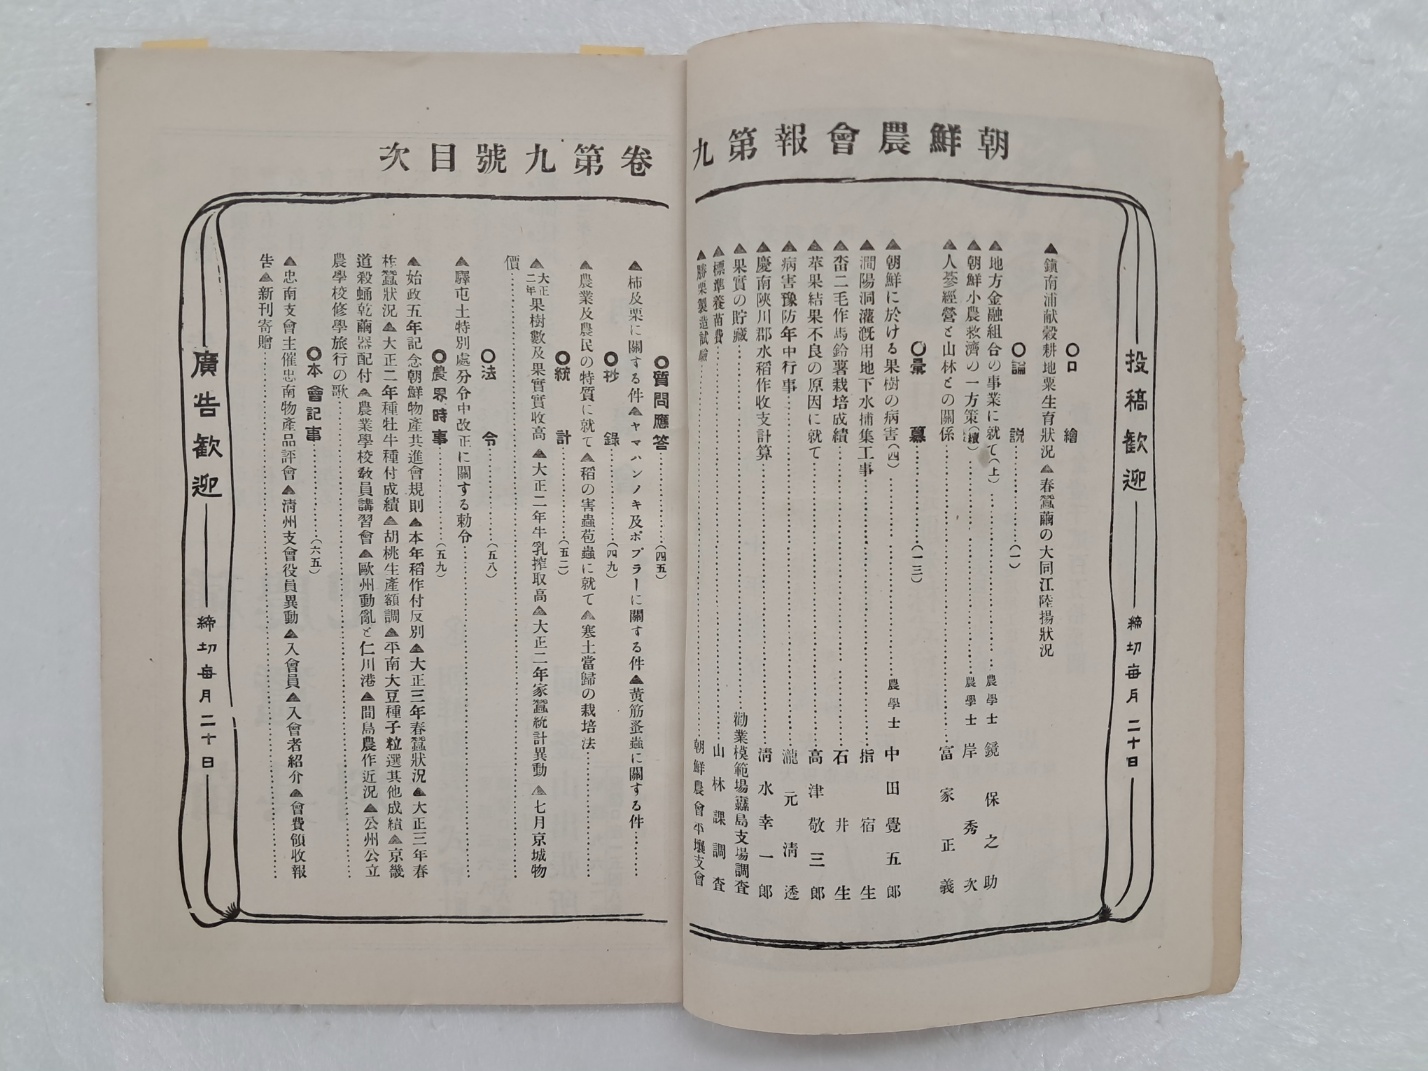 朝鮮農會報第九卷第九號目次
投稿歡迎
締切每月二十日
◎口繪
▲鎭南浦献穀耕地粟生育狀況▲春蠶繭の大同江陸揚狀況
◎論說……(一)
▲地方金融組合の事業に就て(上)……農學士 鏡保之助
▲朝鮮小農救濟の一方策(續)……農學士 岸秀次
▲人蔘經營と山林との關係……富家正義
◎彙纂……(一三)
▲朝鮮に於ける果樹の病害(四)……農學士 中田覺五郞
▲澗陽洞灌漑用地下水捕集工事……指宿生
▲畓二毛作馬鈴薯栽培成績……石井生
▲苹果結果不良の原因に就て……高津敬三郞
▲病害豫防年中行事……瀧元淸透
▲慶南陜川郡水稻作收支計算……淸水幸一郞
▲果實の貯藏……勸業模範場纛島支場調査
▲標準養苗費……山林課調査
▲勝栗製造試驗……朝鮮農會平壤支會
◎質問應答……(四五)
▲柿及栗に關する件▲ヤマハンノキ及ポプラーに關する件▲黃筋蚤蟲に關する件……
◎抄錄……(四九)
▲農業及農民の特質に就て▲稻の害蟲苞蟲に就て▲寒土當歸の栽培法……
◎統計……(五二)
▲大正二年果樹數及果實實收高▲大正二年牛乳搾取高▲大正二年家蠶統計異動▲七月京城物
價……
◎法令……(五八)
驛屯土特別處分令中改正に關する勅令……
◎農界時事……(五九)
▲始政五年記念朝鮮物產共進會規則▲本年稻作付反別▲大正三年春蠶狀況▲大正三年春
柞蠶狀況▲大正二年種牡牛種付成績▲胡桃生產額調▲平南大豆種子粒選其他成績▲京畿
道殺蛹乾繭器配付▲農業學校敎員講習會▲歐州動亂と仁川港▲間島農作近況▲公州公立
農學校修學旅行の歌……
◎本會記事……(六五)
▲忠南支會主催忠南物產品評會▲淸州支會役員異動▲入會員▲入會者紹介▲會費領收報
告▲新刊寄贈……
廣告歡迎
締切每月二十日